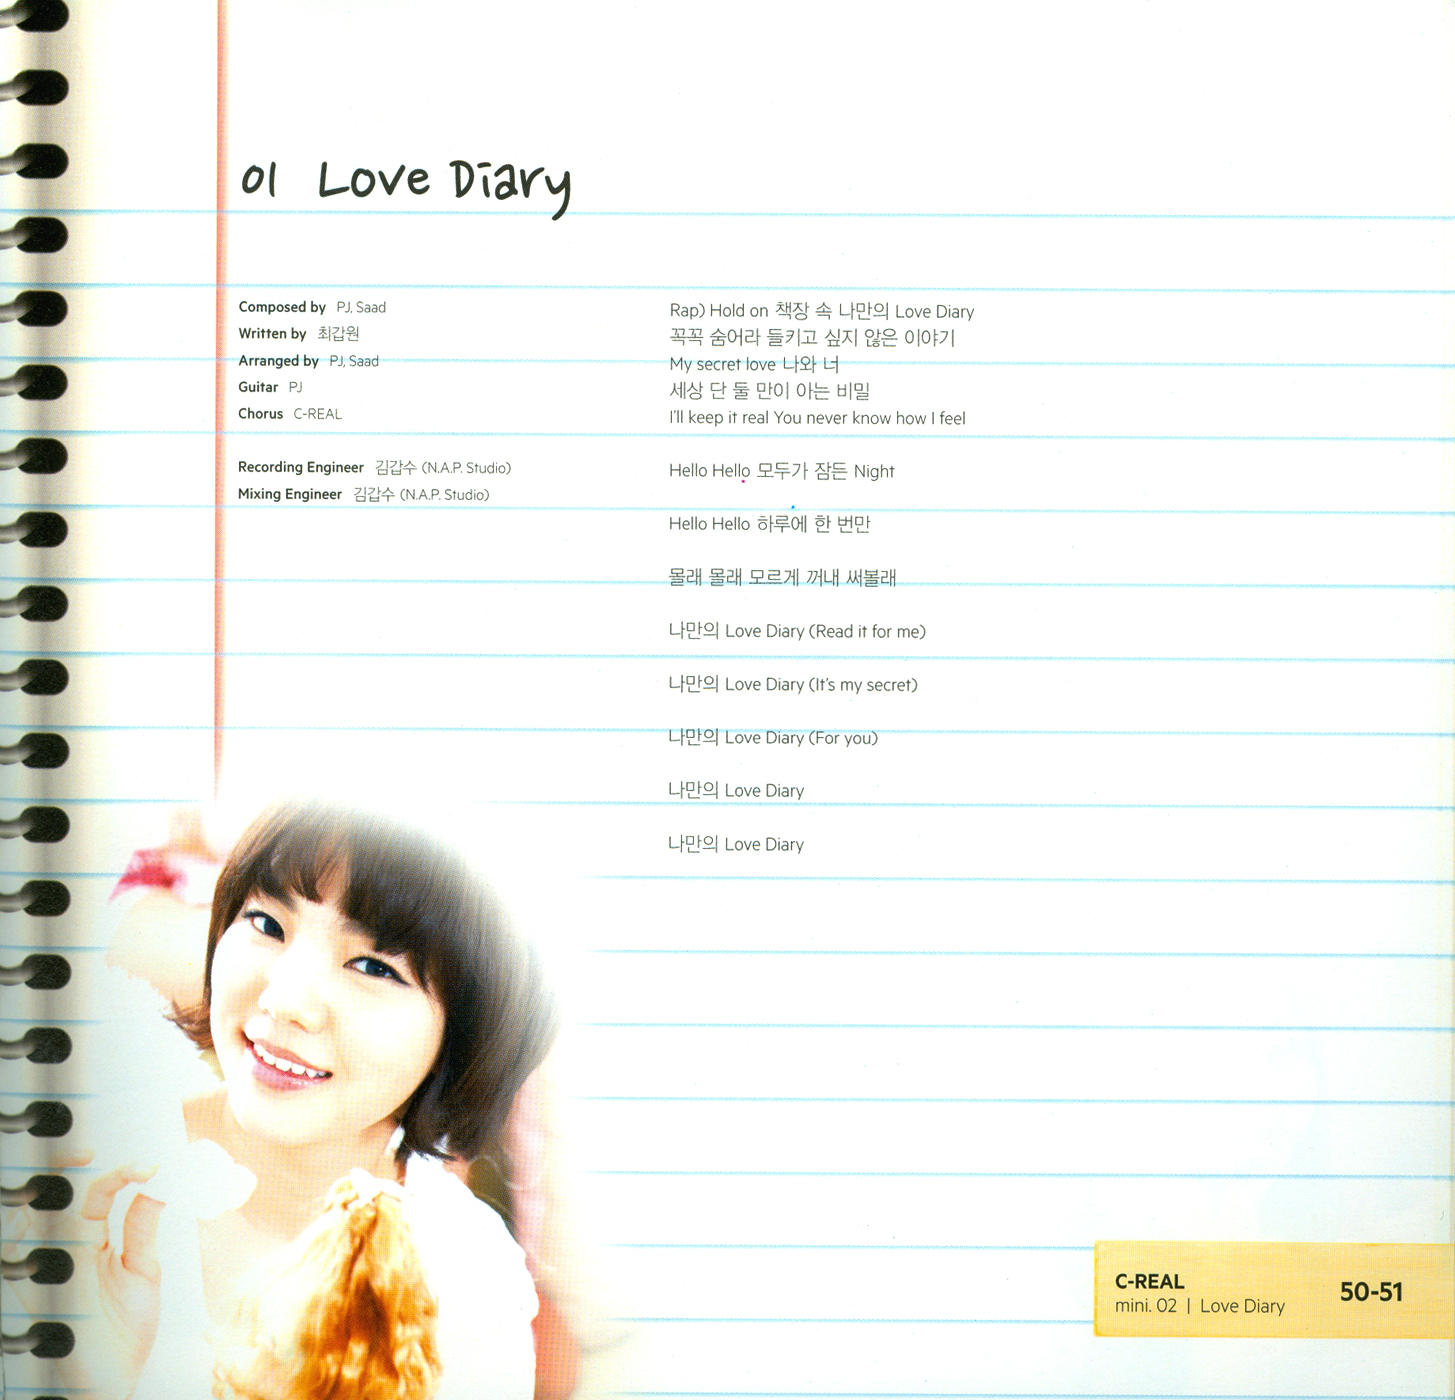 01 Love Diary
Composed by PJ, Saad
Written by 최갑원
Arranged by PJ, Saad
Guitar PJ
Chorus C-REAL
Recording Engineer 김갑수 (N.A.P. Studio)
Mixing Engineer 김갑수 (N.A.P. Studio)
Rap) Hold on 책장 속 나만의 Love Diary
꼭꼭 숨어라 들키고 싶지 않은 이야기
My secret love 나와 너
세상 단 둘 만이 아는 비밀
I'll keep it real You never know how I feel
Hello Hello 모두가 잠든 Night
Hello Hello 하루에 한 번만
몰래 몰래 모르게 꺼내 써볼래
나만의 Love Diary (Read it for me)
나만의 Love Diary (It's my secret)
나만의 Love Diary (For you)
나만의 Love Diary
나만의 Love Diary
C-REAL
mini. 02 | Love Diary
50-51